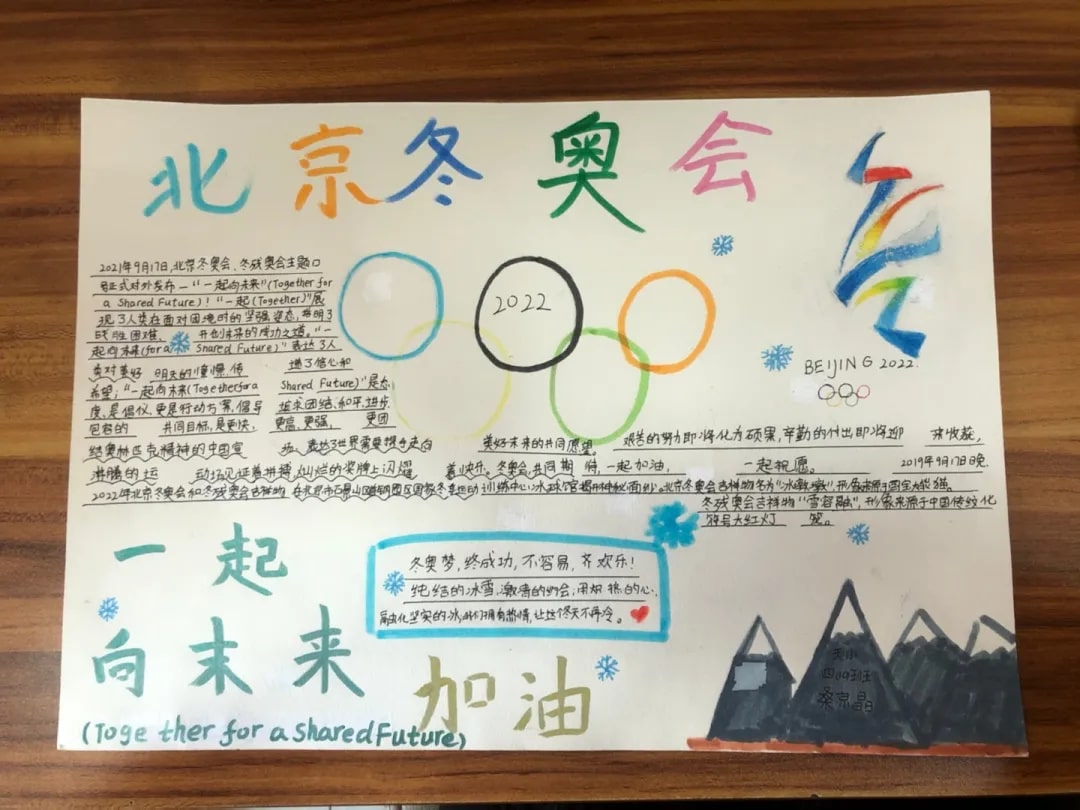 北京冬奥会
2021年9月17日,北京冬奥会、冬残奥会主题口
号正式对外发布—“一起向未来”(Together for
a Shared Future)!“一起(Together)”展
现了人类在面对困境时的坚强姿态,指明了
战胜困难、开创未来的成功之道。“一
起向未来(for a Shared Future)”表达了人
类对美好明天的憧憬,传增了信心和
希望;“一起向未来(Together for a Shared Future)”是态
度、是倡仪、更是行动方案,倡导追求团结、和平、进步、
包容的共同目标,是更快、更高、更强、更团
结奥林匹克精神的中国宣扬、表达了世界需要携手走向美好未来的共同愿望。艰苦的努力即将化为硕果,辛勤的付出即将迎来收获,
沸腾的运动场见证着拼搏,灿烂的奖牌上闪耀着快乐。冬奥会,共同期待,一起加油,一起祝愿。2019年9月17日晚,
2022年北京冬奥会和冬残奥会吉祥物在北京市石景山区首钢园区国家冬季运动训练中心冰球馆揭开神秘面纱。北京冬奥会吉祥物名为“冰墩墩”,形象来源于国宝大熊猫。
冬残奥会吉祥物“雪容融”,形象来源于中国传统文化
符号大红灯笼。
2022
BEIJING 2022
冬奥梦,终成功,不容易,齐欢乐!
纯结的冰雪,激情的约会,用炽热的心,
融化坚实的冰,让我们拥有热情,让这个冬天不再冷。
一起
向末来
(Together for a Shared Future)
加油
四(4)班